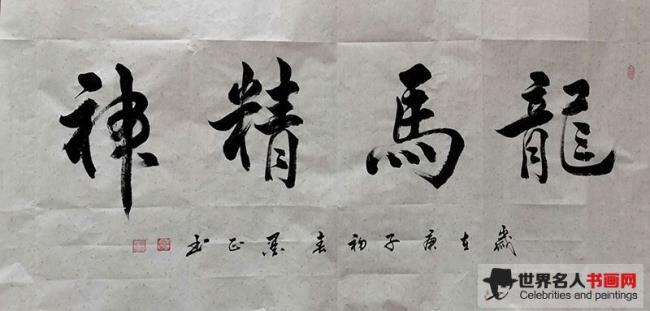 龍馬精神
歲在庚子初春墨正玉
世界名人书画网
Celebrities and paintings